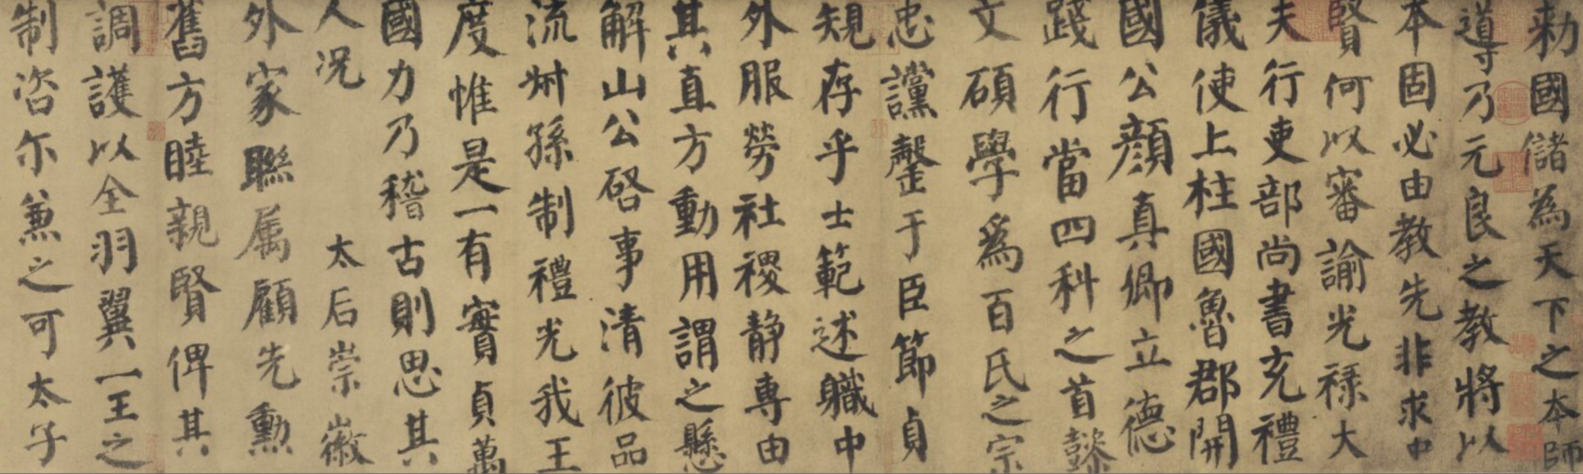 勑國儲為天下之本師
導乃元良之教將以
本固必由教先非求中
賢何以審諭光禄大
夫行吏部尚書充禮
儀使上柱國魯郡開
國公顏真卿立德
踐行當四科之首懿
文碩學為百氏之宗
忠讜罄于臣節貞
規存乎士範述職中
外服勞社稷靜專由
其直方動用謂之懸
解山公啓事清彼品
流叔孫制禮光我王
度惟是一有實貞萬
國力乃稽古則思其
人況 太后崇徽
外家聯属顧先勳
舊方睦親賢俾其
調護以全羽翼一王之
制咨尓兼之可太子